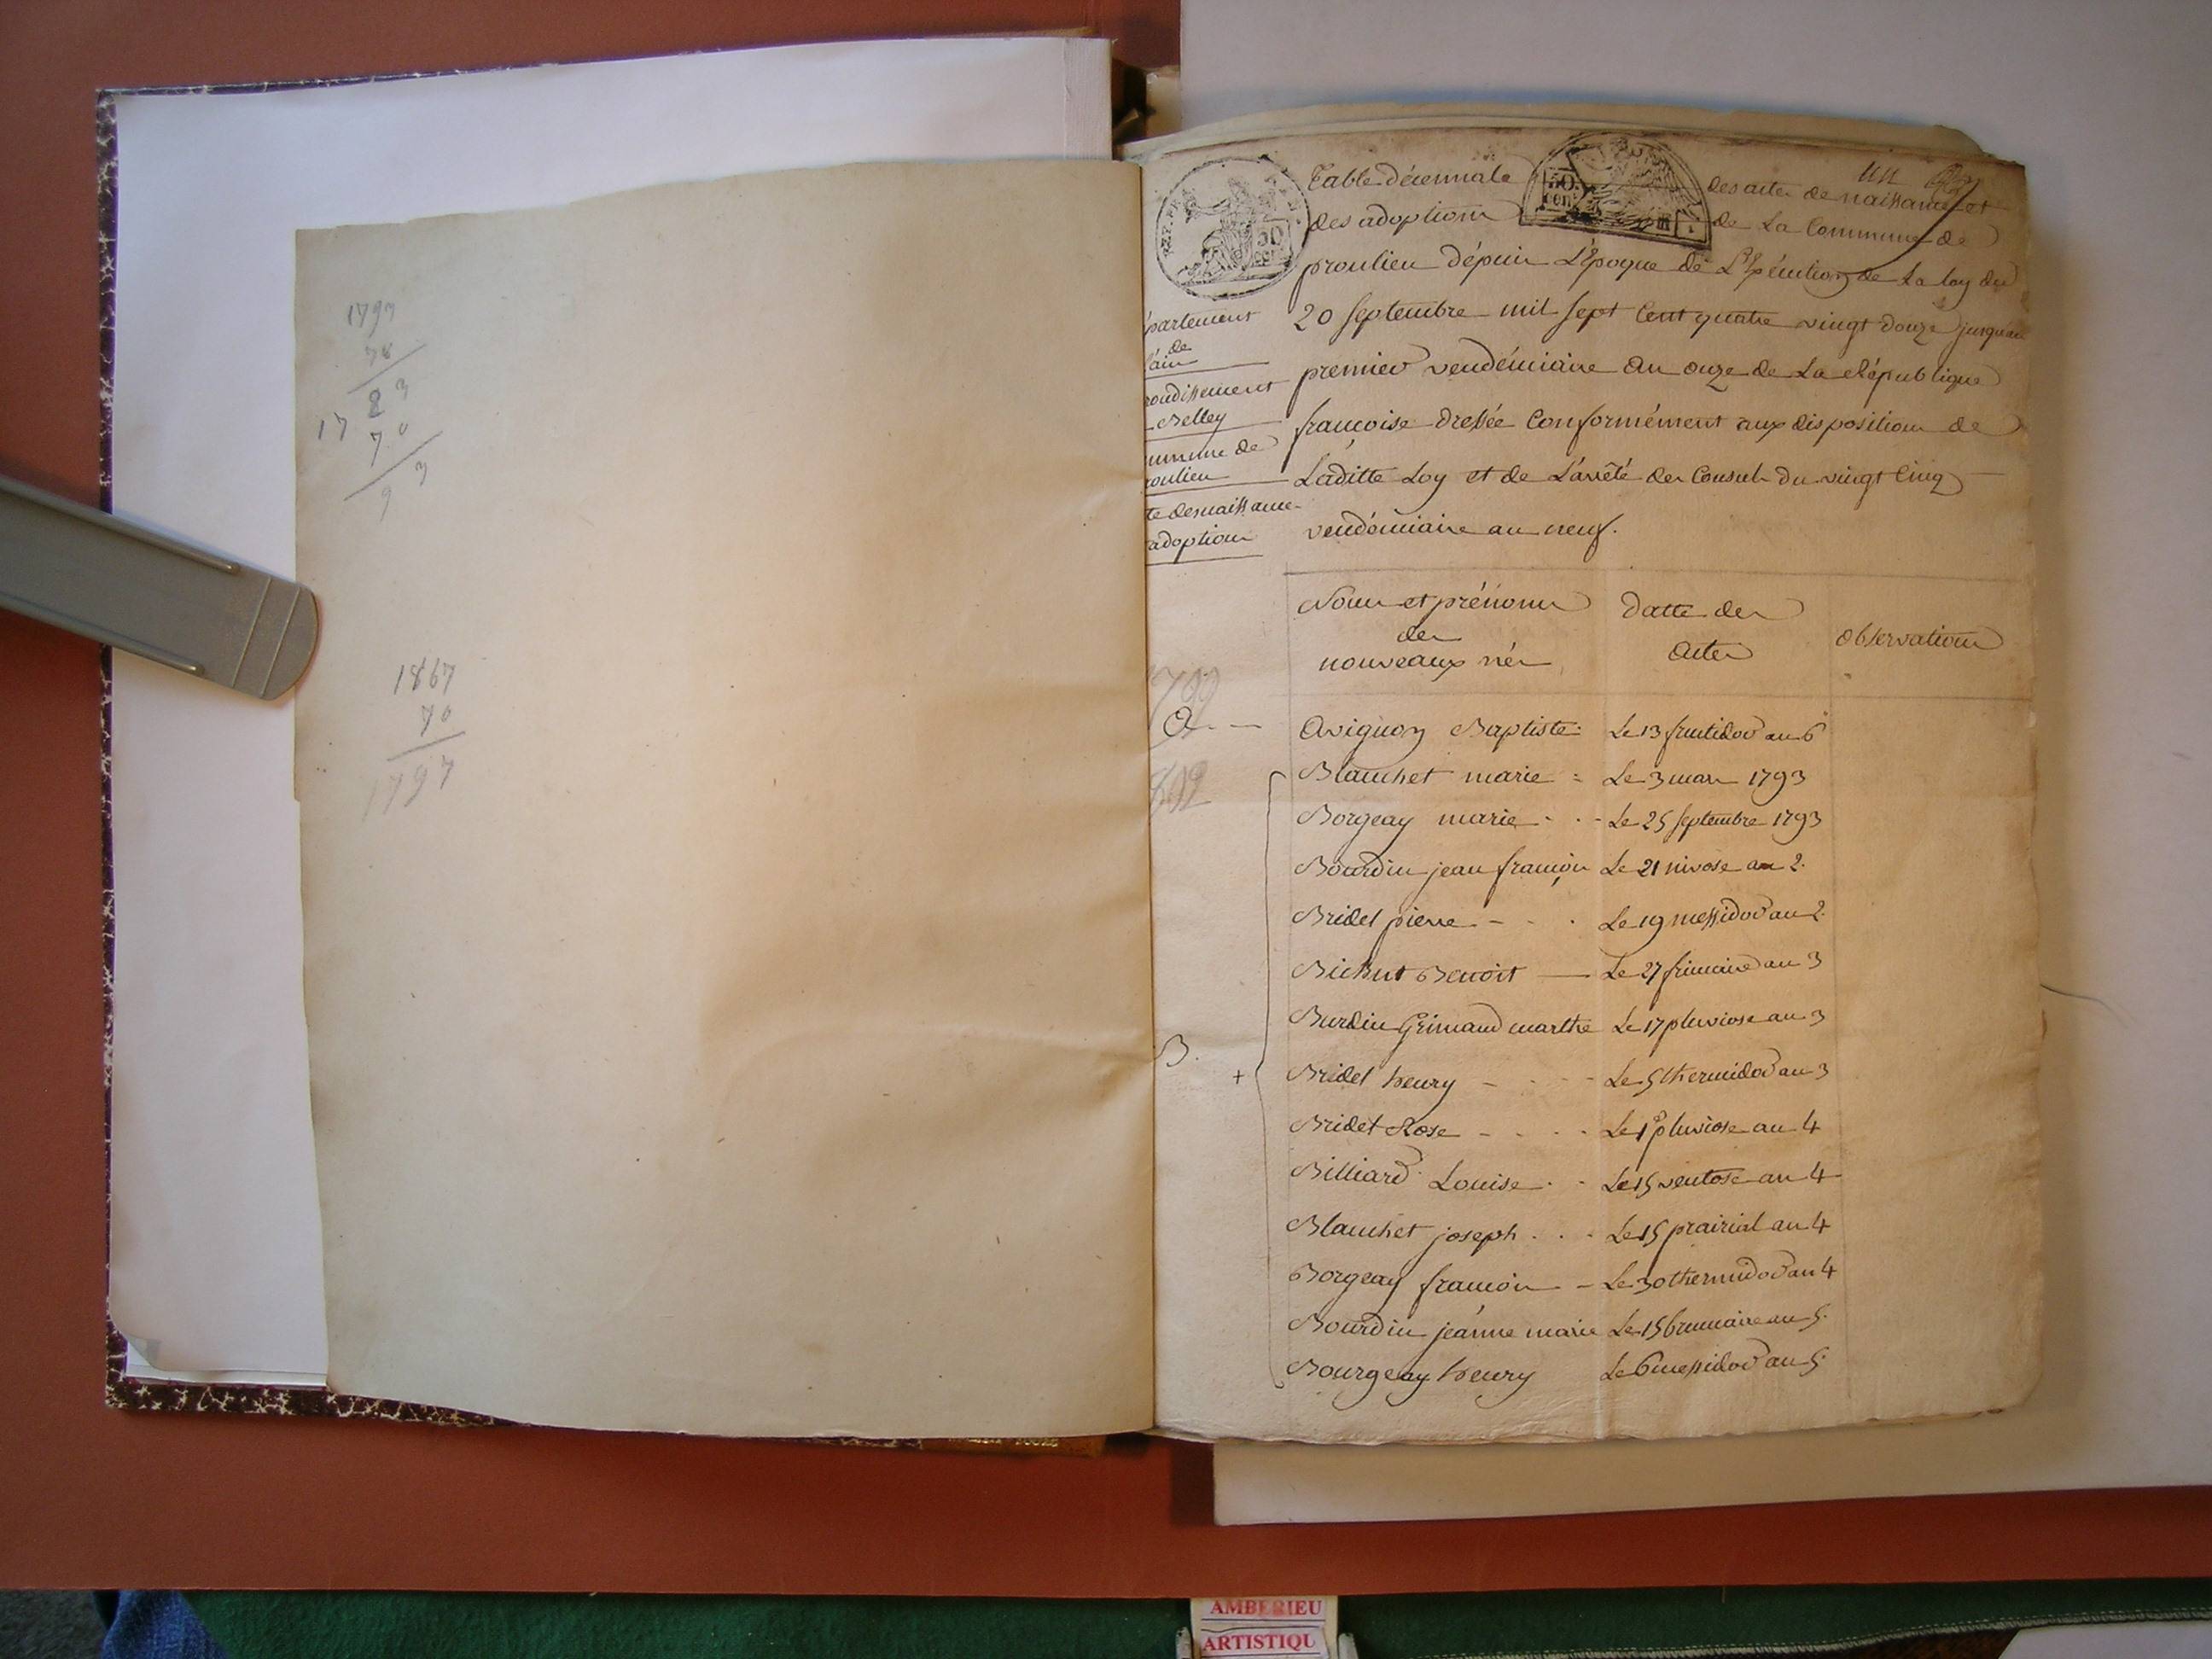 1793
70
83
17
70
93
1867
70
1797
un
Table décennale des actes de naissance et
des adoptions de la Commune de
proulieu dépuis L'Epoque de L'Exécution de la loy du
20 septembre mil sept cent quatre vingt douze jusqu'au
premier vendémiaire an onze de La République
françoise dressée Conformément aux dispositions de
Laditte Loy et de L'arrêté des Consuls du vingt cinq
vendémiaire an neuf.
REP. FRA
50
cen.
50
cen.
partement
de
l'ain
rondissement
Belley
mmune de
roulieu
te des naissance
adoptions
Noms et prénoms
des
nouveaux nés
Datte des
actes
observations
799
802
A. — Avignon Baptiste Le 13 fructidor an 6
B. + Blanchet marie = Le 3 mars 1793
Borgeay marie - - - Le 25 septembre 1793
Bourdin jean françois Le 21 nivose an 2.
Bridet pierre - - . Le 19 messidor an 2.
Bichut Benoit — Le 27 frimaire an 3
Burdin Grimaud marthe Le 17 pluviose an 3
Bridet henry - - - - Le 5 thermidor an 3
Bridet Rose - - - - Le 1er pluviose an 4
Billiard Louise - - Le 15 ventose an 4
Blanchet joseph . . . Le 15 prairial an 4
Borgeay françois - Le 30 thermidor an 4
Bourdin jeanne marie Le 15 brumaire an 5.
Bourgeay henry Le 6 messidor an 5.
AMBERIEU
ARTISTIQU